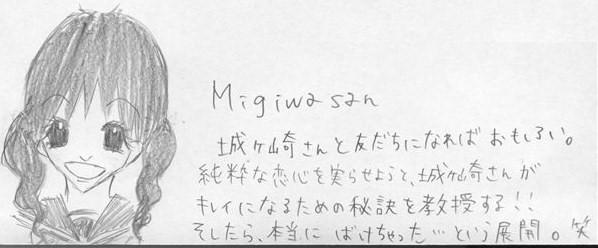 Migiwa san
城ヶ崎さんと友だちになればおもしろい。
純粋な恋心を実らせようと、城ヶ崎さんが
キレイになるための秘訣を教授する!!
そしたら、本当にばけちゃった…という展開。笑